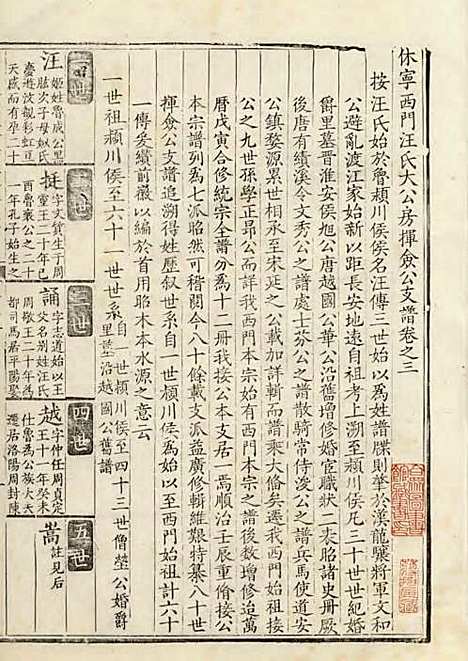 休寧西門汪氏大公房揮僉公支譜卷之三
按汪氏始於魯潁川侯侯名汪傳三世始以為姓譜牒則華於漢龍驤將軍文和
公避亂渡江家始新以居始新長安地遠自祖考上溯至潁川侯凡三十世世紀婚
爵里墓晋淮安侯旭公唐越國公華公沿舊增修婚宦職狀一一表昭諸史册厥
後唐有績溪令文秀公之譜處士芬公之譜散騎常侍浚公之譜兵馬使道安
公鎮婺源累世相承至宋延之公載加詳輯而譜書乘大俻矣遷我西門始祖接
公之九世孫學正昻公而詳我西門本宗始有西門本宗之譜後數增修迨萬
曆戊寅合修統宗全譜分為十二册我接公本支居一焉順治壬辰重脩接公
本宗譜列為七派昭然可稽閱今八十餘載支派益廣修輯維艱特纂八十世
揮僉公支譜追溯得姓歷叙世系自一世潁川侯為始以至西門始祖計六十
一傳爰續前徽以編於首用昭木本水源之意云
一世祖潁川侯至六十一世世系自一世潁川侯至四十三世僧瑩公婚爵里塟沿越國公舊譜
一世
二世
三世
四世
五世
汪
姬姓魯成公黒
肱次子母姒氏
慶遊汶觀彩虹亘
天感而有孕二十
挺
字文質生于周
靈王二十年己
酉魯襄公之二
十一年孔子始生之
誦
字志道始以王
父名别姓汪氏
周敬王二十年為
都司馬居平陽娶
越
字仲任周貞定
王十一年癸未
仕魯為公族大夫
遷居洛陽周封陳
嵩
註見后